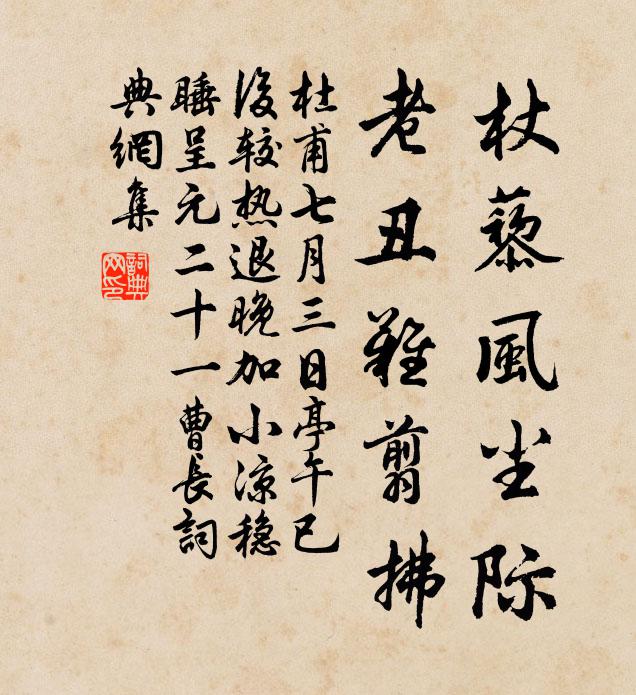 杖藜風尘际
老丑難翦拂
杜甫七月三日亭午已
後较热退晚加小涼稳
睡呈元二十一曹長詞
典網集
詞典
网印